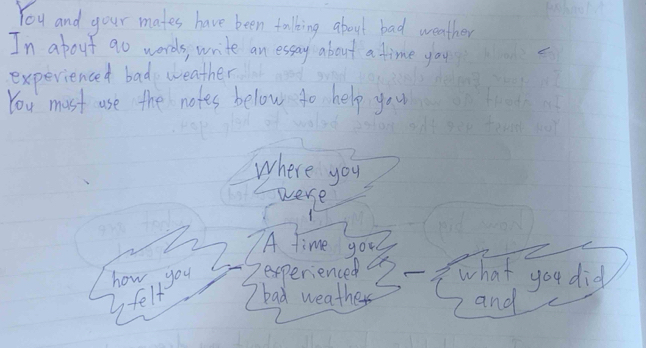 You and your mates have been talking about bad weather
In about 90 words, write an essay about a time you
experienced bad weather.
You must use the notes below to help you
Where you
were
A time you
experienced
bad weather
how you
felt
what you did
and